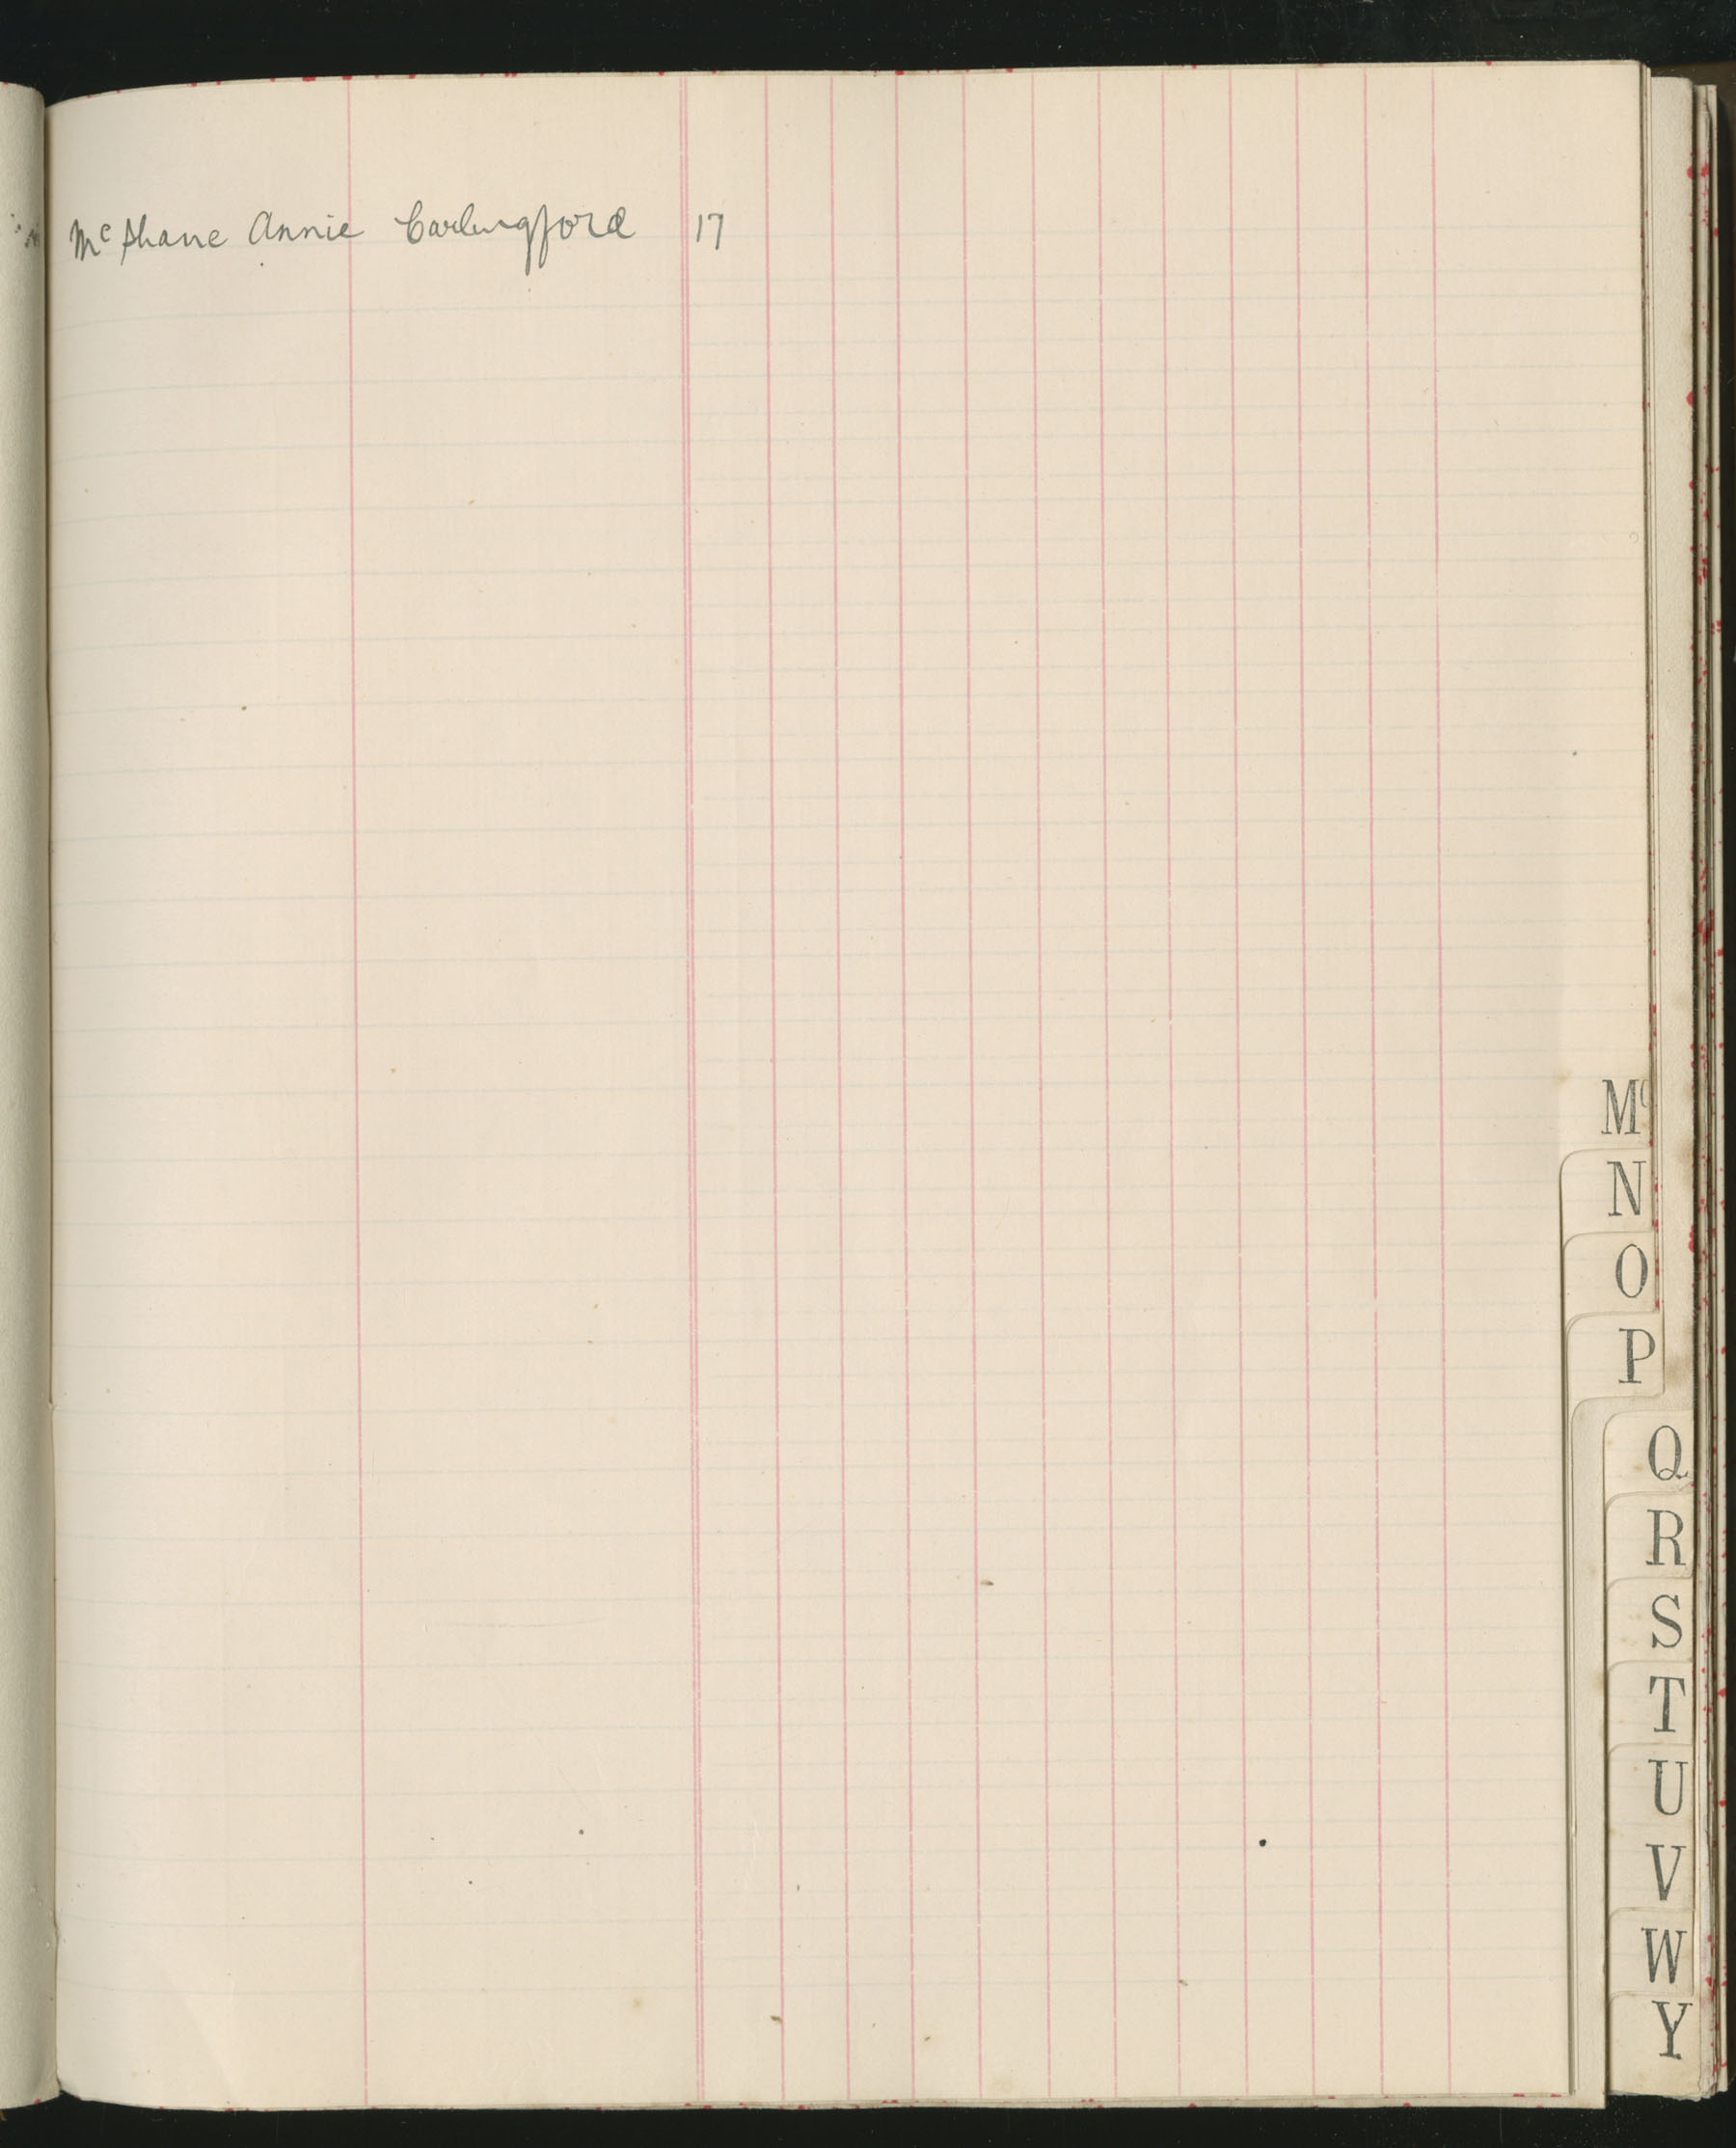 Mc Shane Annie Carlingford 17
Mc
N
O
P
Q
R
S
T
U
V
W
Y